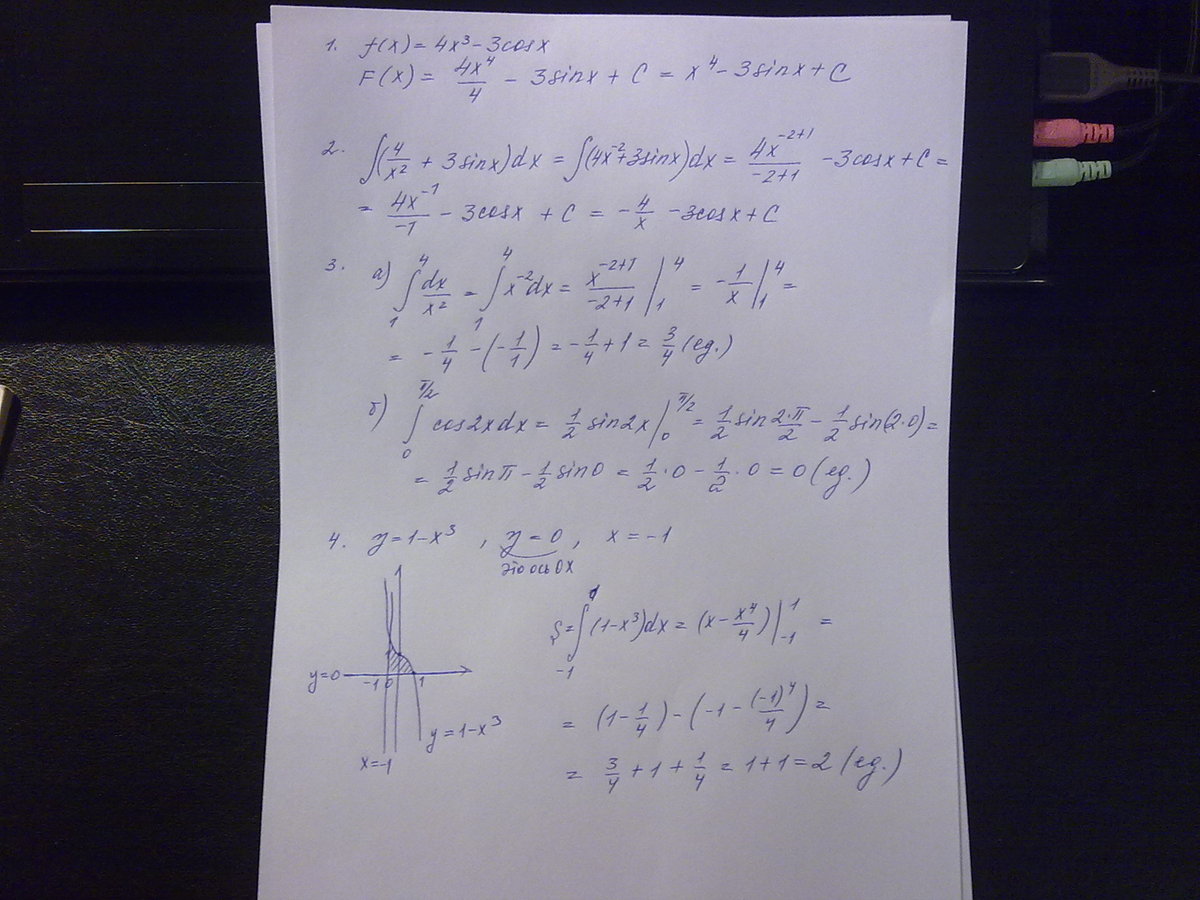 1. f(x) = 4x³ - 3cosx
F(x) = 4x⁴/4 - 3sinx + C = x⁴ - 3sinx + C
2. ∫(4/x² + 3sinx)dx = ∫(4x⁻²+3sinx)dx = 4x⁻²⁺¹/-2+1 - 3cosx + C =
= 4x⁻¹/-1 - 3cosx + C = -4/x - 3cosx + C
3. а) ∫₁⁴ dx/x² = ∫₁⁴ x⁻²dx = x⁻²⁺¹/-2+1 |₁⁴ = -1/x |₁⁴ =
= -1/4 - (-1/1) = -1/4 + 1 = 3/4 (ед.)
б) ∫₀^π/2 cos2xdx = 1/2 sin2x |₀^π/2 = 1/2 sin 2·π/2 - 1/2 sin(2·0) =
= 1/2 sinπ - 1/2 sin0 = 1/2 · 0 - 1/2 · 0 = 0 (ед.)
4. y = 1-x³, y = 0, x = -1
это ось OX
S = ∫₋₁¹ (1-x³)dx = (x - x⁴/4) |₋₁¹ =
= (1 - 1/4) - (-1 - (-1)⁴/4) =
= 3/4 + 1 + 1/4 = 1 + 1 = 2 (ед.)
1
y=0
-1 0 1
y = 1-x³
x=-1